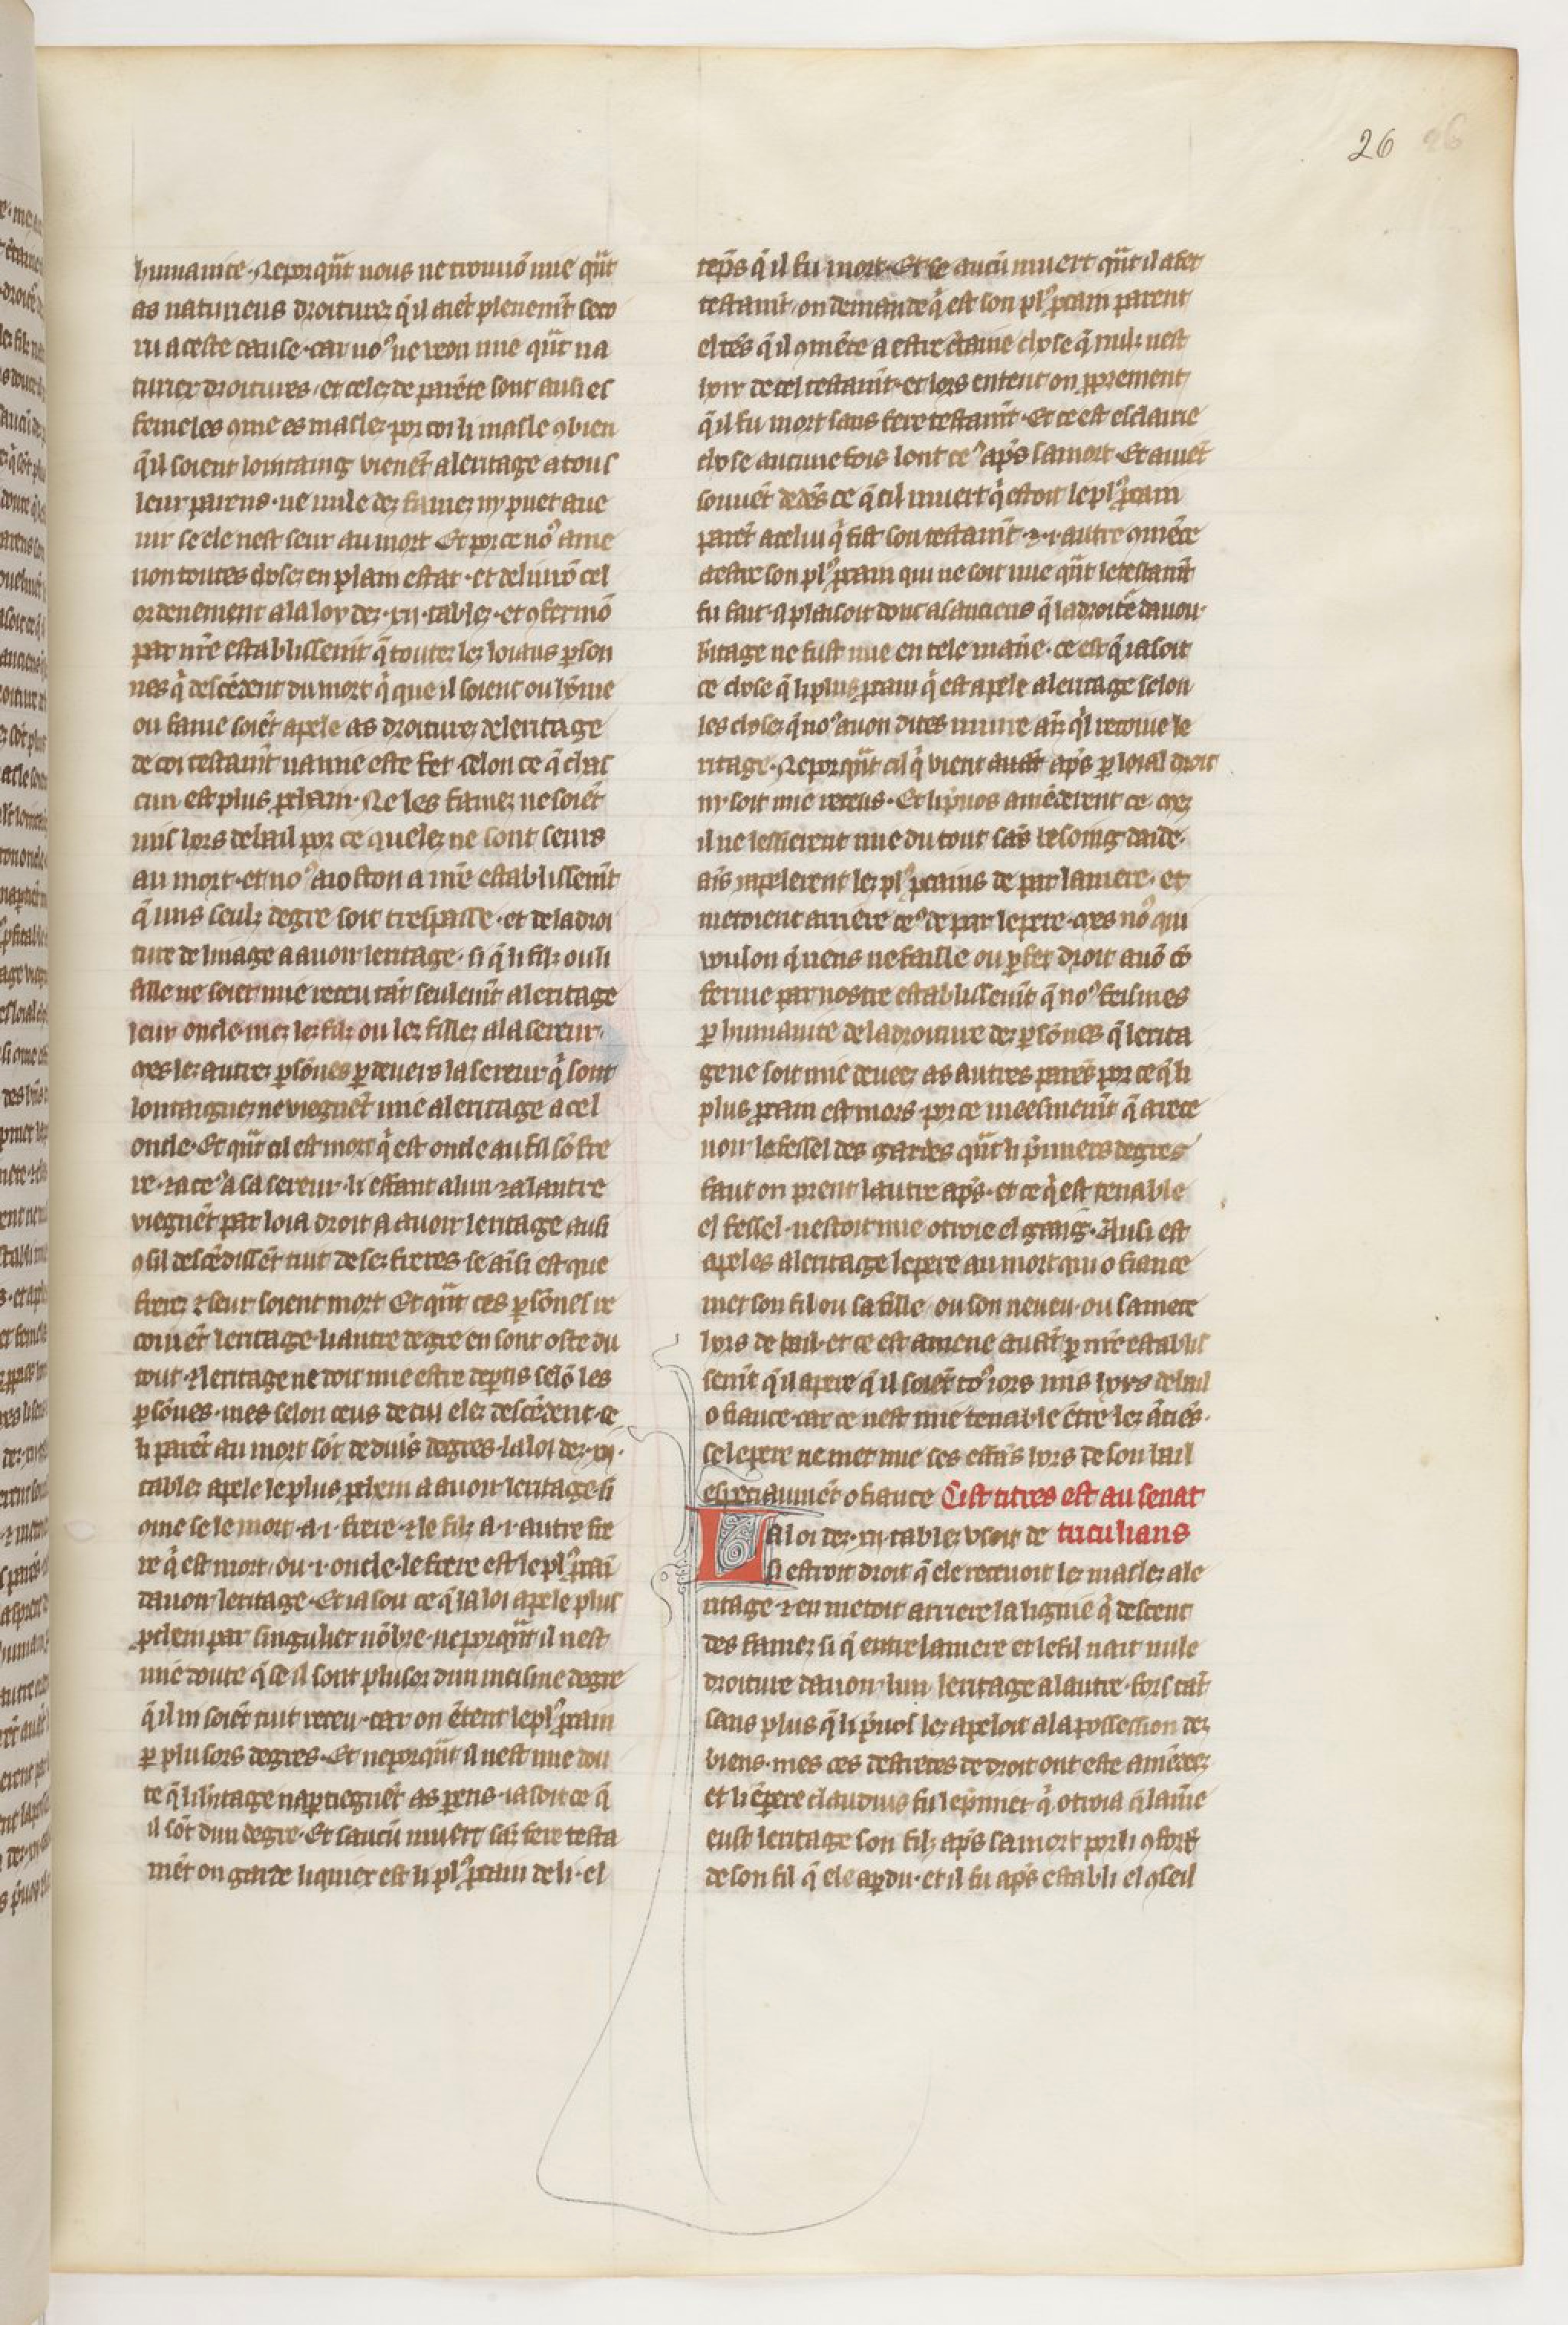 26
humanite. Neporqūt nous ne trouuō mie qūt
as naturieus droiturez q̄ il aiēt plenemt̄ seco
ru a ceste cause. car no⁹ ne veon mie qūt na
turier droitures. et celez de parēte sont ausi es
femeles 9me es maslez. por coi li masle 9bien
q̄il soient lointaing vienēt aleritage a tous
leur parens. ne nule dez famez ny puet aue
nir se ele nest seur au mort Et por ce no⁹ ame
non toutes chosez en plain estat. et deliurō cel
ordenement a la loy dez .xij. tablez. et 9fermō
par nr̄e establissemt̄ q̄ toutez lez loiaus pson
nes q̄ descēdent du mort q̄ que il soient ou hōme
ou fame soiēt apele as droiturez deleritage
de coi testamt̄ na mie este fet. selon ce q̄ chas
cun est plus prchain. Ne les famez ne soiēt
mis hors delail por ce quelez ne sont seurs
au mort. et no⁹ aiouston a nr̄e establissemt̄
q̄ uns seulz degre soit trespasse. et de la droi
ture de linage a auoir leritage. si q̄ li filz ou li
fille ne soiēt mie receu tāt seulemt̄ aleritage
leur oncle. mez lez filz ou lez fillez a la sereur.
mes lez autrez psōnes pdeuers la sereur q̄ sont
lontaignez ne viegnēt mie aleritage a cel
oncle. Et qūt cil est mort q̄ est oncle au fil sō fre
re. 7 a ce⁹ a sa sereur. li effant a lun 7 a lautre
viegnēt par loia droit a auoir leritage ausi
9 sil descēdissēt tuit de sez freres. se aīsi est que
frerez 7 seur soient mort Et qūt ces psōnes re
coiuēt leritage. li autre degre en sont oste du
tout. 7 leritage ne doit mie estre departis selō les
psōnes. mes selon ceus de cui elez descēdent. se
li parēt au mort sōt de diuˢs degres. la loi dez .xij.
tablez apele le plus prchein a auoir leritage. si
9me se le mort .a .i. frere. 7 le filz .a .i. autre fre
re q̄ est mort. ou .i. oncle. le frere est le pl⁹ prchaī
dauoir leritage. Et ia soit ce q̄ la loi apele plus
prchein par singulier nōbre. neporqūt il nest
mie doute q̄ se il sont plusor dun meisme degre
q̄ il ni soiēt tuit receu. car on ētent le pl⁹ prchain
p plusors degres. Et neporqūt il nest mie dou
te q̄ li hˢitage naptiegnēt as pˢens. ia soit ce q̄
il sōt dun degre. Et saucū muert sāz fere testa
mēt on garde li quiex est li pl⁹ prchain de li. el
tēps q̄ il fu mort. Et se aucū muert qūt il a fet
testamt̄ on demande q̄ est son pl⁹ prchain parent
el tēs q̄ il 9mēce a estre ētaine chose q̄ nulz nest
hoir de cel testamt̄. et lors entent on prprement
q̄ il fu mort sans fere testamt̄. Et ce est esclairie
chose aucune fois lont ce⁹ aps̄ sa mort. Et auiēt
souuēt dedēs ce q̄ cil muert q̄ estoit le pl⁹ prchain
parēt a celui q̄ fist son testamt̄. 7 .i. autre 9mēce
a estre son pl⁹ prchain qui ne soit mie qūt le testamt̄
fu fait. il plaisoit donc as anciens q̄ la droite dauoir
hˢitage ne fust mie en tele maniē. ce est q̄ ia soit
ce chose q̄ li plus prchain q̄ est apele aleritage selon
les chosez q̄ no⁹ auon dites muire aīz q̄l recoiue le
ritage. Neporqūt cil q̄ vient ausit aps̄ p loial droit
ni soit mie receus. Et li puos amēderent ce. mez
il ne lessierent mie du tout sās besoing daide.
aīs apelerent lez pl⁹ prchains de par la mere. et
metoient arriere ce⁹ de par le pere. mes no⁹ qui
voulon q̄ riens ne faille ou pfet droit auō cō
ferme par nostre establissemt̄ q̄ no⁹ feismes
p humanite de la droiture dez psōnes q̄ lerita
ge ne soit mie deueez as autres parēs por ce q̄ li
plus prchain est mors. por ce meesmemt̄ q̄ a rece
uoir le fessel des gardes qūt li pˢmiers degres
faut on prent lautre aps̄. et ce q̄ est tenable
el fessel. nestoit mie otroie el gaaīg. Ausi est
apeles aleritage le pere au mort qui o fiance
met son fil ou sa fille. ou son neueu. ou sa niece
hors de bail. et ce est amene ausit p nr̄e establis
semt̄ q̄ il apere q̄ il soiēt to⁹iors mis hors de bail
o fiance. car ce nest mie tenable ētre lez āciēs.
se le pere ne met mie ses effās hors de son bail
especiaumēt o fiance Cist titres est au senat
La loi dez .xij. tablez usoit de tuculians
si estroit droit q̄ ele receuoit lez maslez ale
ritage. 7 en metoit arriere la lignie q̄ descent
des famez si q̄ entre la mere et le fil nait nule
droiture dauoir lun leritage a lautre. fors tāt
sans plus q̄ li puos lez apeloit a la possession dez
biens. mes ces destreces de droit ont este amēdeez
et li ēpere claudius fu le pˢmier q̄ otroia q̄ la mˢe
eust leritage son filz aps̄ sa mort por li 9fortˢ
de son fil q̄ ele a pdu. et il fu aps̄ establi el 9seil